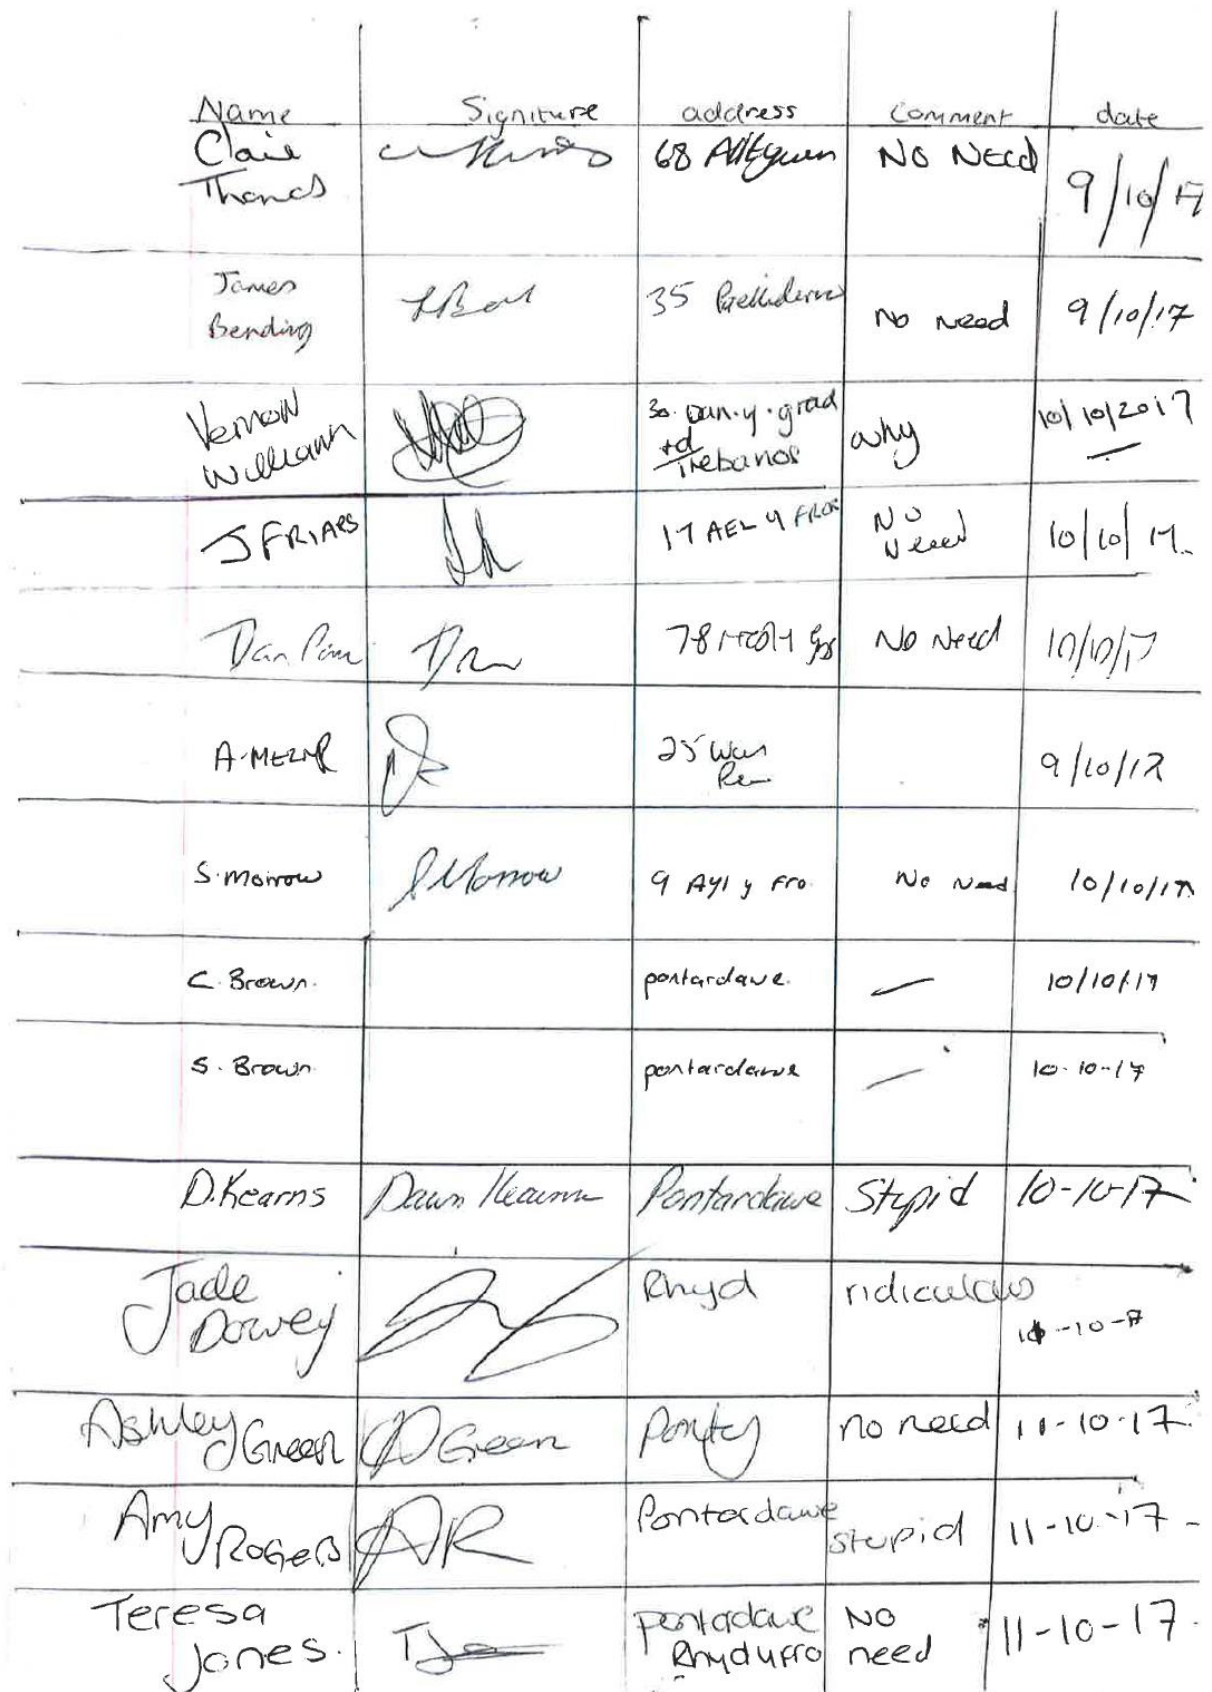 Name Signiture address comment date
Claire Thomas 68 Alltygwen No Need 9/10/17
James Bending 35 No Need 9/10/17
Vernon William 30. Dan.y.grad rd Trebanos why 10/10/2017
J FRIARS 17 AEL Y FRO No Need 10/10/17.
Dan 78 No Need 10/10/17
A. 25 9/10/17
S. Morrow S Morrow 9 Ayl y Fro. No Need 10/10/17
C. Brown. pontardawe. — 10/10/17
S. Brown. pontardawe — 10-10-17
D. Kearns Dawn Kearns Pontardawe Stupid 10-10-17
Jade Dovey Rhyd ridiculous 10-17
Ashley Green A Green Ponty no need 11-10-17
Amy Rogers AR Pontardawe stupid 11-10-17
Teresa Jones. TJ pontardawe Rhydyfro No need 11-10-17.